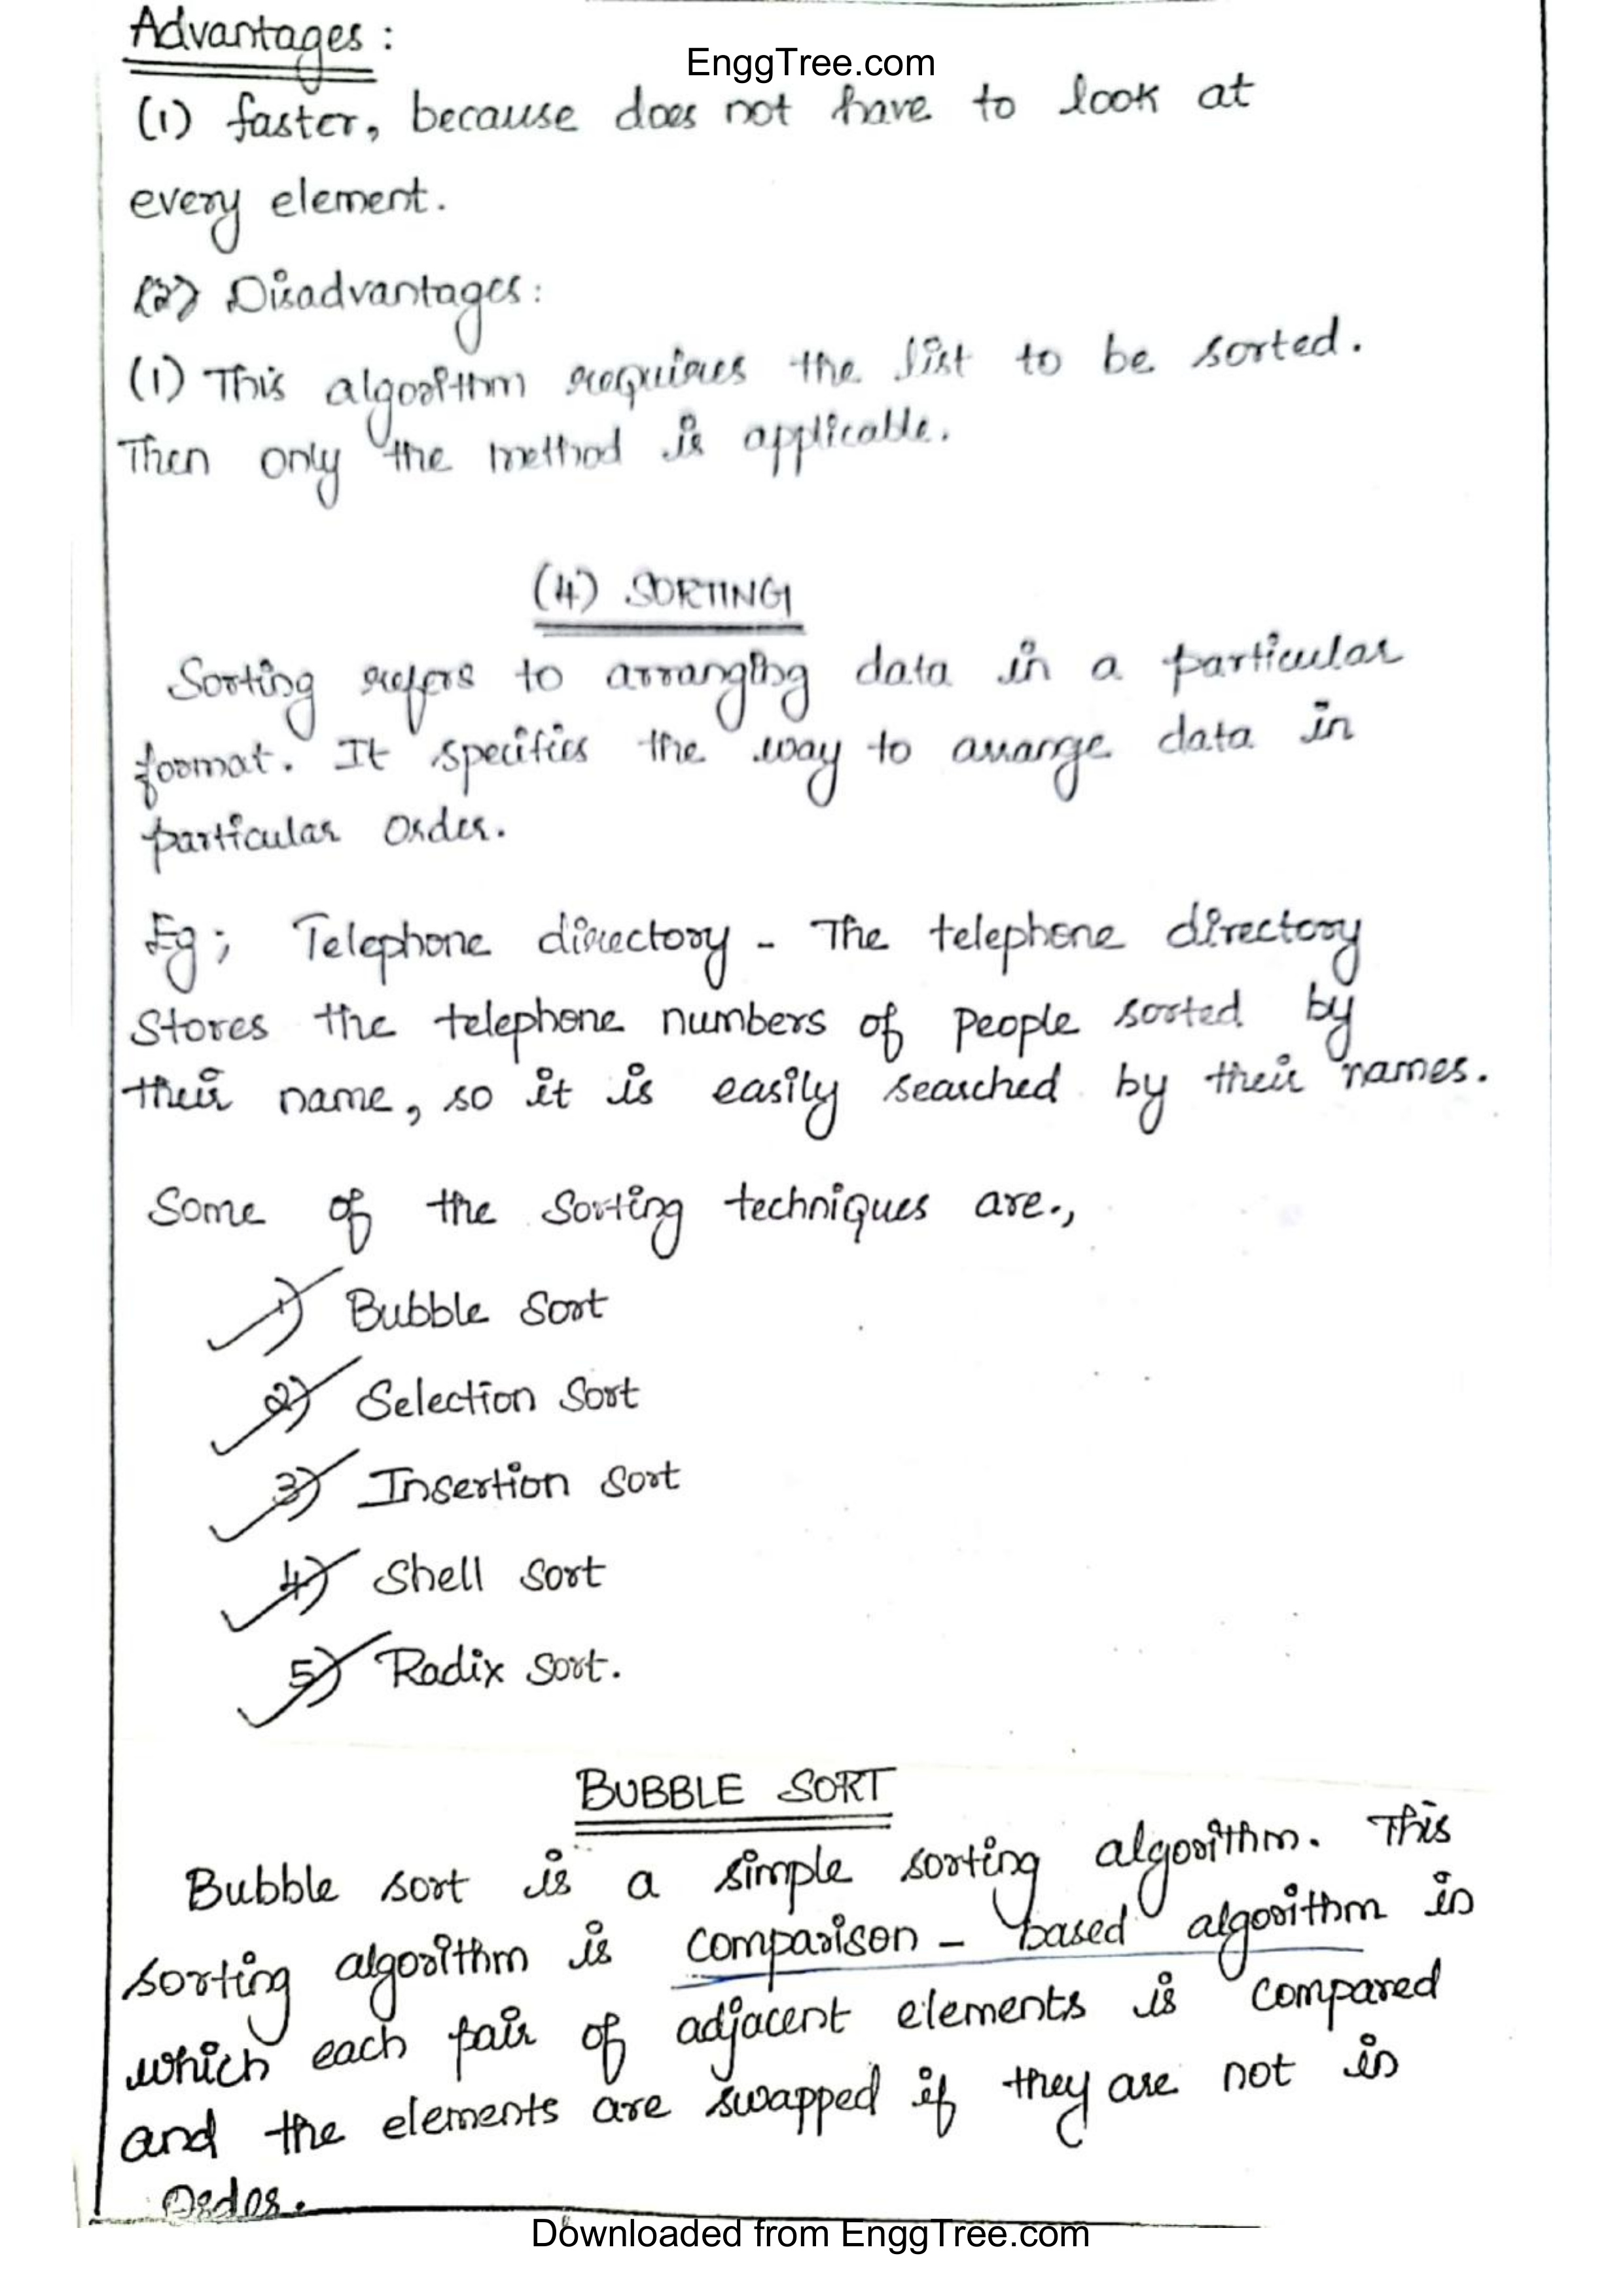 Advantages :
EnggTree.com
(1) faster, because does not have to look at
every element.
(2) Disadvantages:
(1) This algorithm requires the list to be sorted.
Then only the method is applicable.
(4) SORTING
Sorting refers to arranging data in a particular
format. It specifies the way to arrange data in
particular order.
Eg; Telephone directory - The telephone directory
Stores the telephone numbers of people sorted by
their name, so it is easily searched by their names.
Some of the Sorting techniques are.,
1) Bubble Sort
2) Selection Sort
3) Insertion Sort
4) Shell Sort
5) Radix Sort.
BUBBLE SORT
Bubble sort is a simple sorting algorithm. This
sorting algorithm is comparison - based algorithm in
which each pair of adjacent elements is compared
and the elements are swapped if they are not in
Order.
Downloaded from EnggTree.com